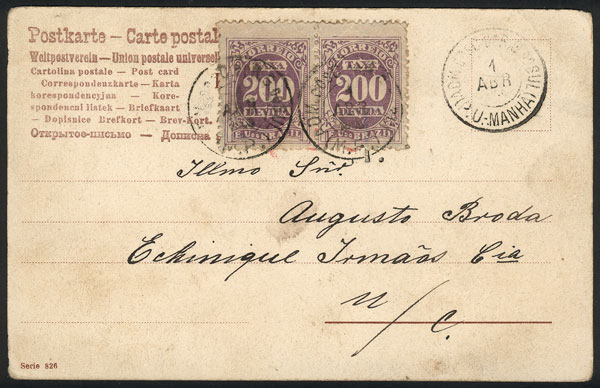 Postkarte – Carte postal
Weltpostverein – Union postale universel
Cartolina postale – Post card
Correspondenzkarte – Karta
korespondencyjna – Kore-
spondenční listek – Briefkaart
– Dopisnice Brefkort – Brev-Kort.
Открытое-письмо – Дописна
CORREIO
TAXA
200
DEVIDA
BRAZIL
CORREIO
TAXA
200
DEVIDA
BRAZIL
1
ABR
P.U-MANHÃ
T.
Illmo Snr.
Augusto Broda
Echinique Irmãos Cia
N/C.
Serie 826